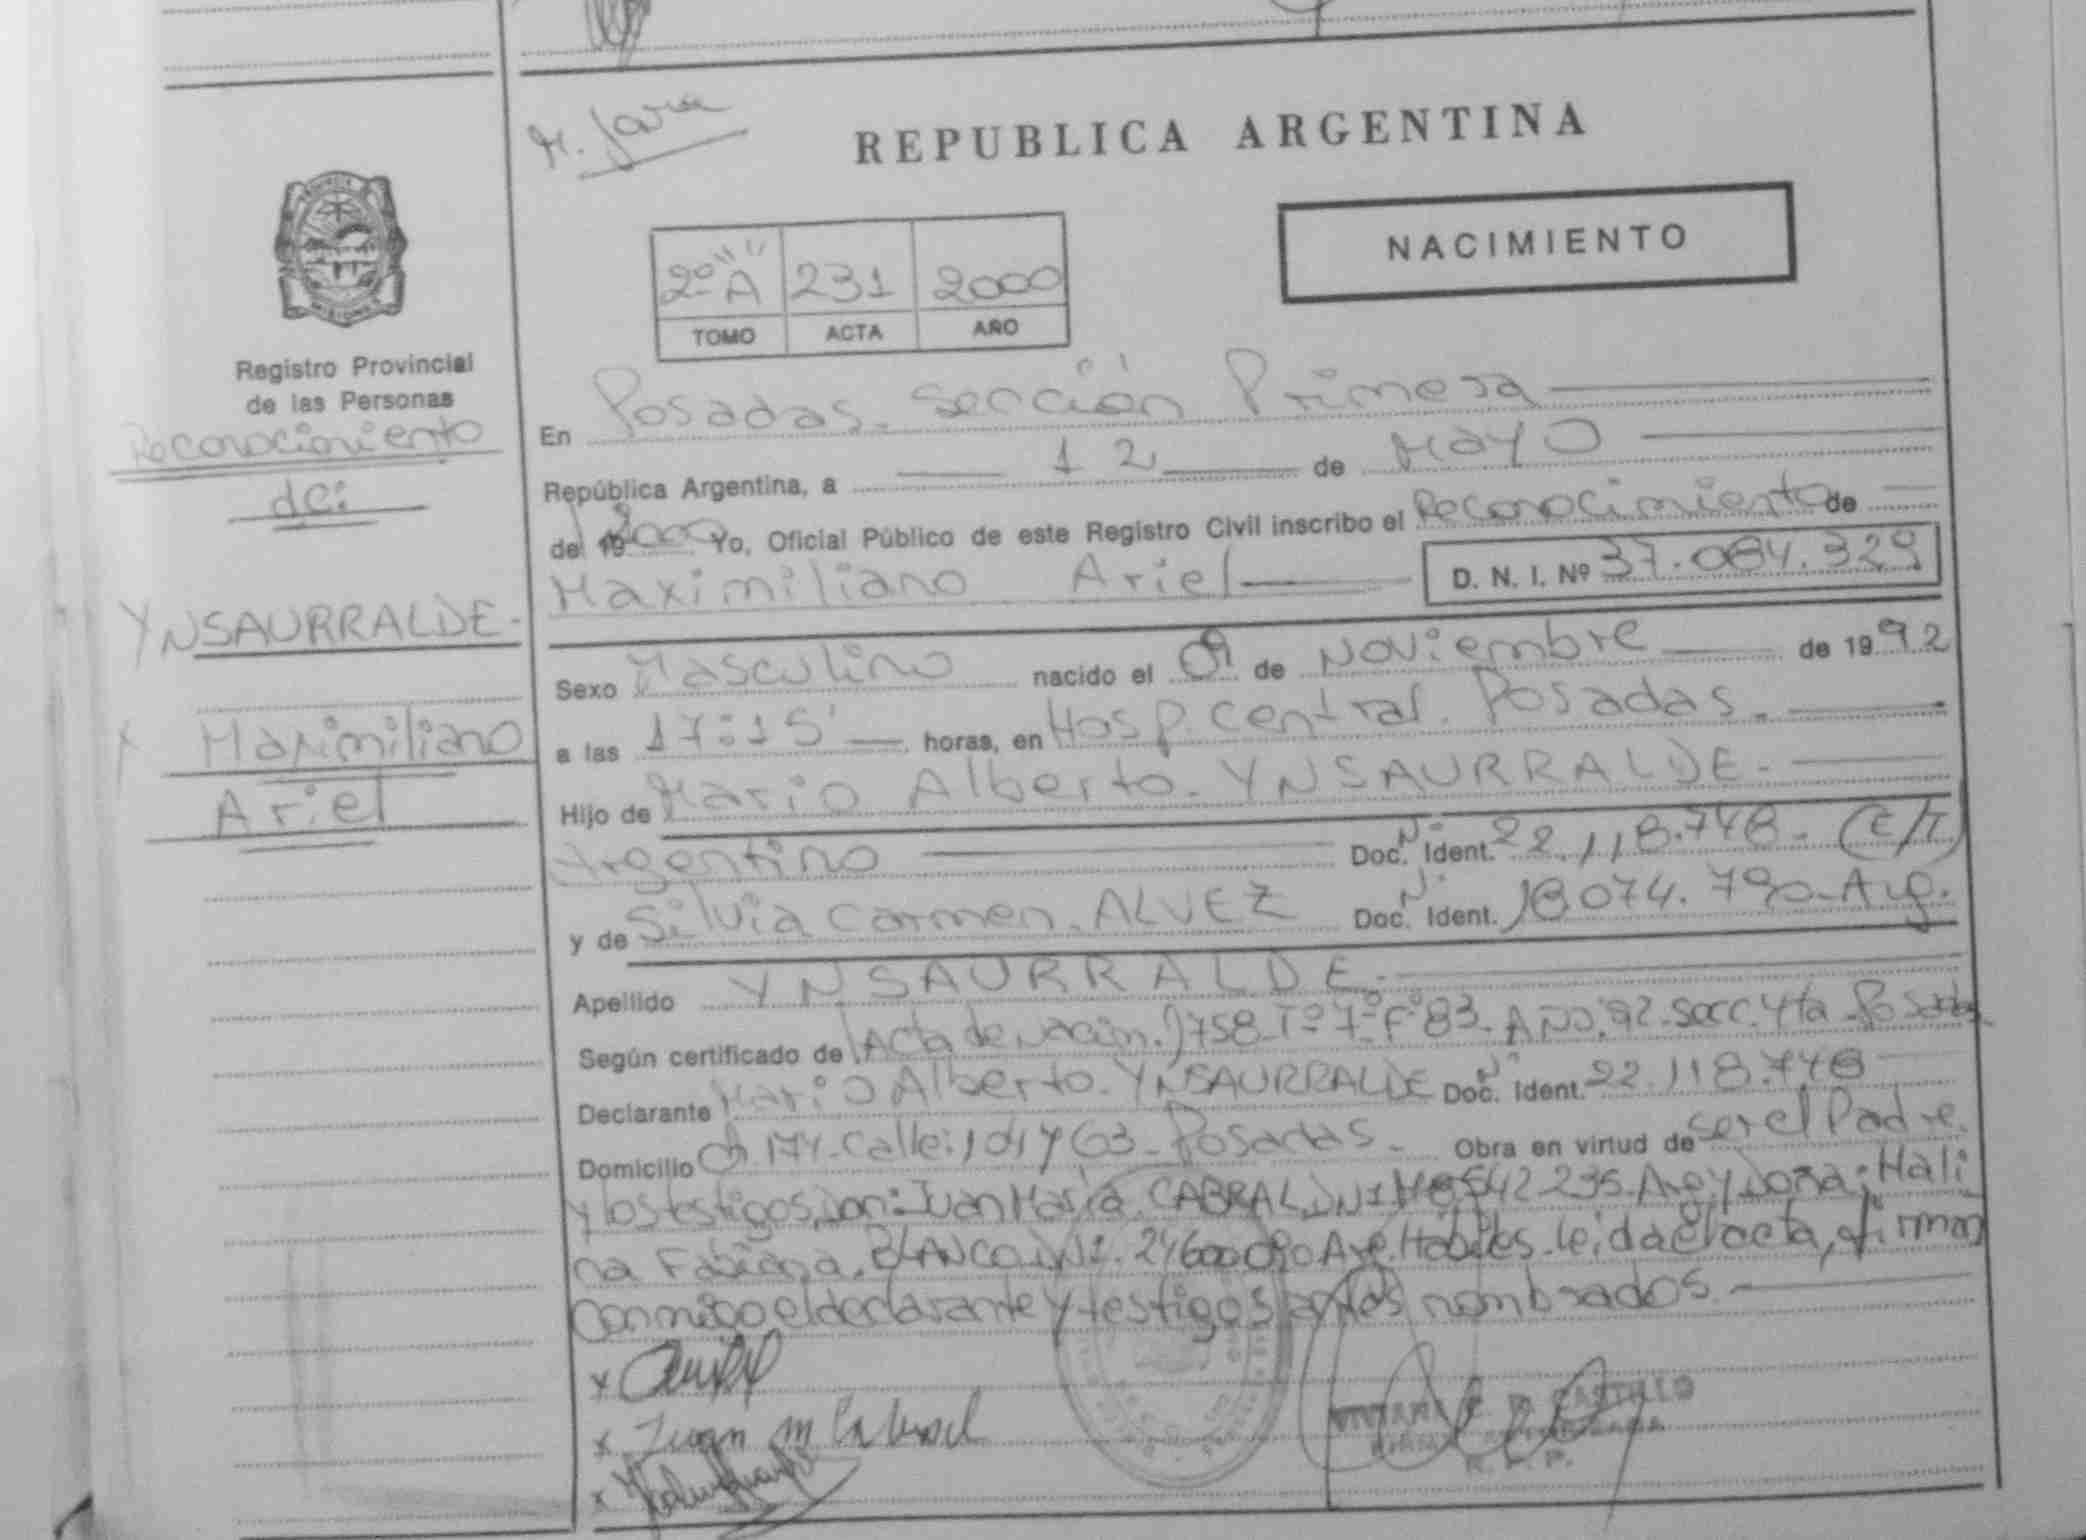 REPUBLICA ARGENTINA
NACIMIENTO
2º "A" 231 2000
TOMO ACTA AÑO
Registro Provincial
de las Personas
Reconocimiento
de:
YNSAURRALDE-
Maximiliano
Ariel
En Posadas. Sección Primera
República Argentina, a 12 de Mayo
de 19 2000 Yo, Oficial Público de este Registro Civil inscribo el Reconocimiento de
Maximiliano Ariel D. N. I. Nº 37.084.329
Sexo Masculino nacido el 09 de Noviembre de 1992
a las 17:15' horas, en Hosp. Central. Posadas.
Hijo de Mario Alberto. YNSAURRALDE.
Argentino Doc. Nº Ident. 22.118.748. (E/T)
y de Silvia Carmen. ALVEZ Doc. Nº Ident. 18.074.790-Arg.
Apellido YNSAURRALDE.
Según certificado de (Acta de Nacim.) 758-Tº 7º-Fº 83-AÑO:92-Secc. 4ta-Posadas
Declarante Mario Alberto. YNSAURRALDE Doc. Nº Ident. 22.118.748
Domicilio Ch 174-Calle: 101 y 63-Posadas. Obra en virtud de ser el Padre.
y los testigos, Don: Juan María. CABRAL DNI M8542235-Arg. y Doña: Mali
na Fabiana. BLANCO. DNI. 24600090 Arg. Hábiles. leída el acta, firman
conmigo el declarante y testigos antes nombrados.
Juan M Cabral
CASTILLO
R. P. P.